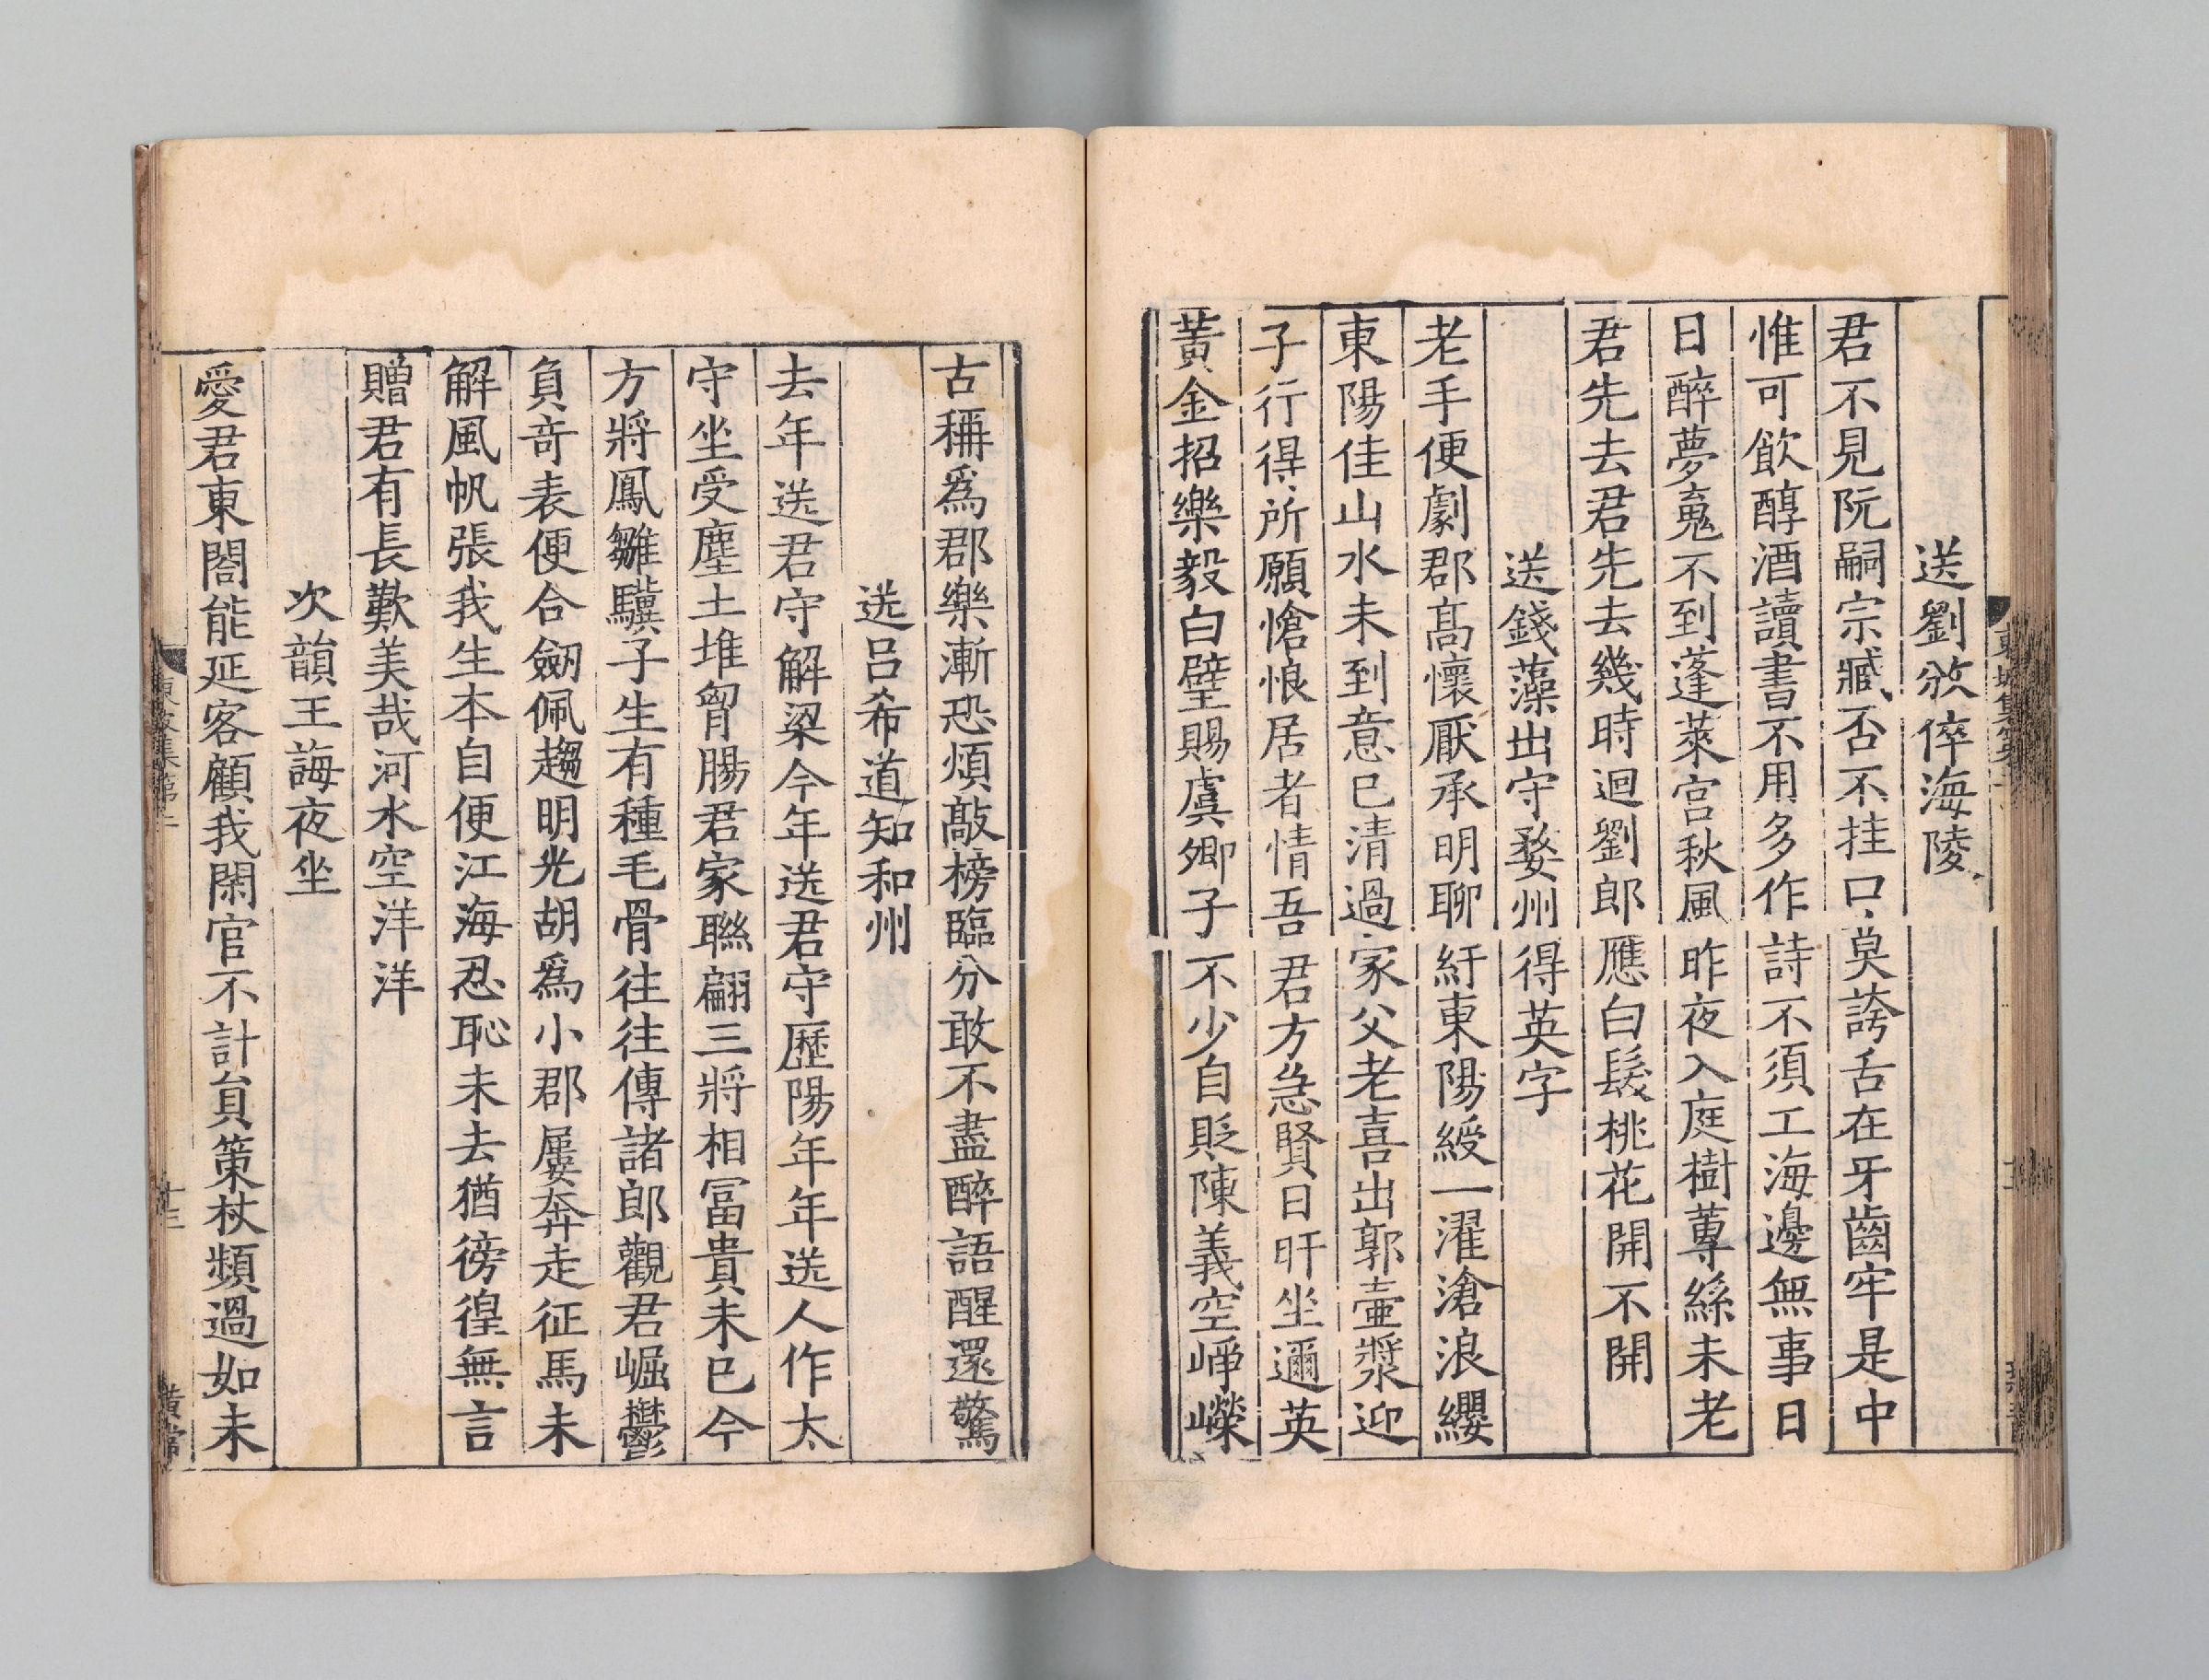 送劉攽倅海陵
君不見阮嗣宗臧否不挂口莫誇舌在牙齒牢是中
惟可飮醇酒讀書不用多作詩不須工海邊無事日
日醉夢䰟不到蓬萊宫秋風昨夜入庭樹蓴絲未老
君先去君先去幾時迴劉郎應白髮桃花開不開
送錢藻出守婺州得英字
老手便劇郡髙懷厭承明聊紆東陽綬一濯滄浪纓
東陽佳山水未到意已清過家父老喜出郭壷漿迎
子行得所願愴悢居者情吾君方急賢日旰坐邇英
黃金招樂毅白璧賜虞卿子不少自貶陳義空崢嶸
古稱爲郡樂漸恐煩敲榜臨分敢不盡醉語醒還驚
送吕希道知和州
去年送君守解梁今年送君守歷陽年年送人作太
守坐受塵土堆胷腸君家聯翩三將相冨貴未已今
方將鳳雛驥子生有種毛骨往往傳諸郎觀君崛鬱
負竒表便合劒佩趨明光胡爲小郡屢奔走征馬未
解風帆張我生本自便江海忍恥未去猶徬徨無言
贈君有長歎美哉河水空洋洋
次韻王誨夜坐
愛君東閤能延客顧我閑官不計負策杖頻過如未
東坡集第二
十三